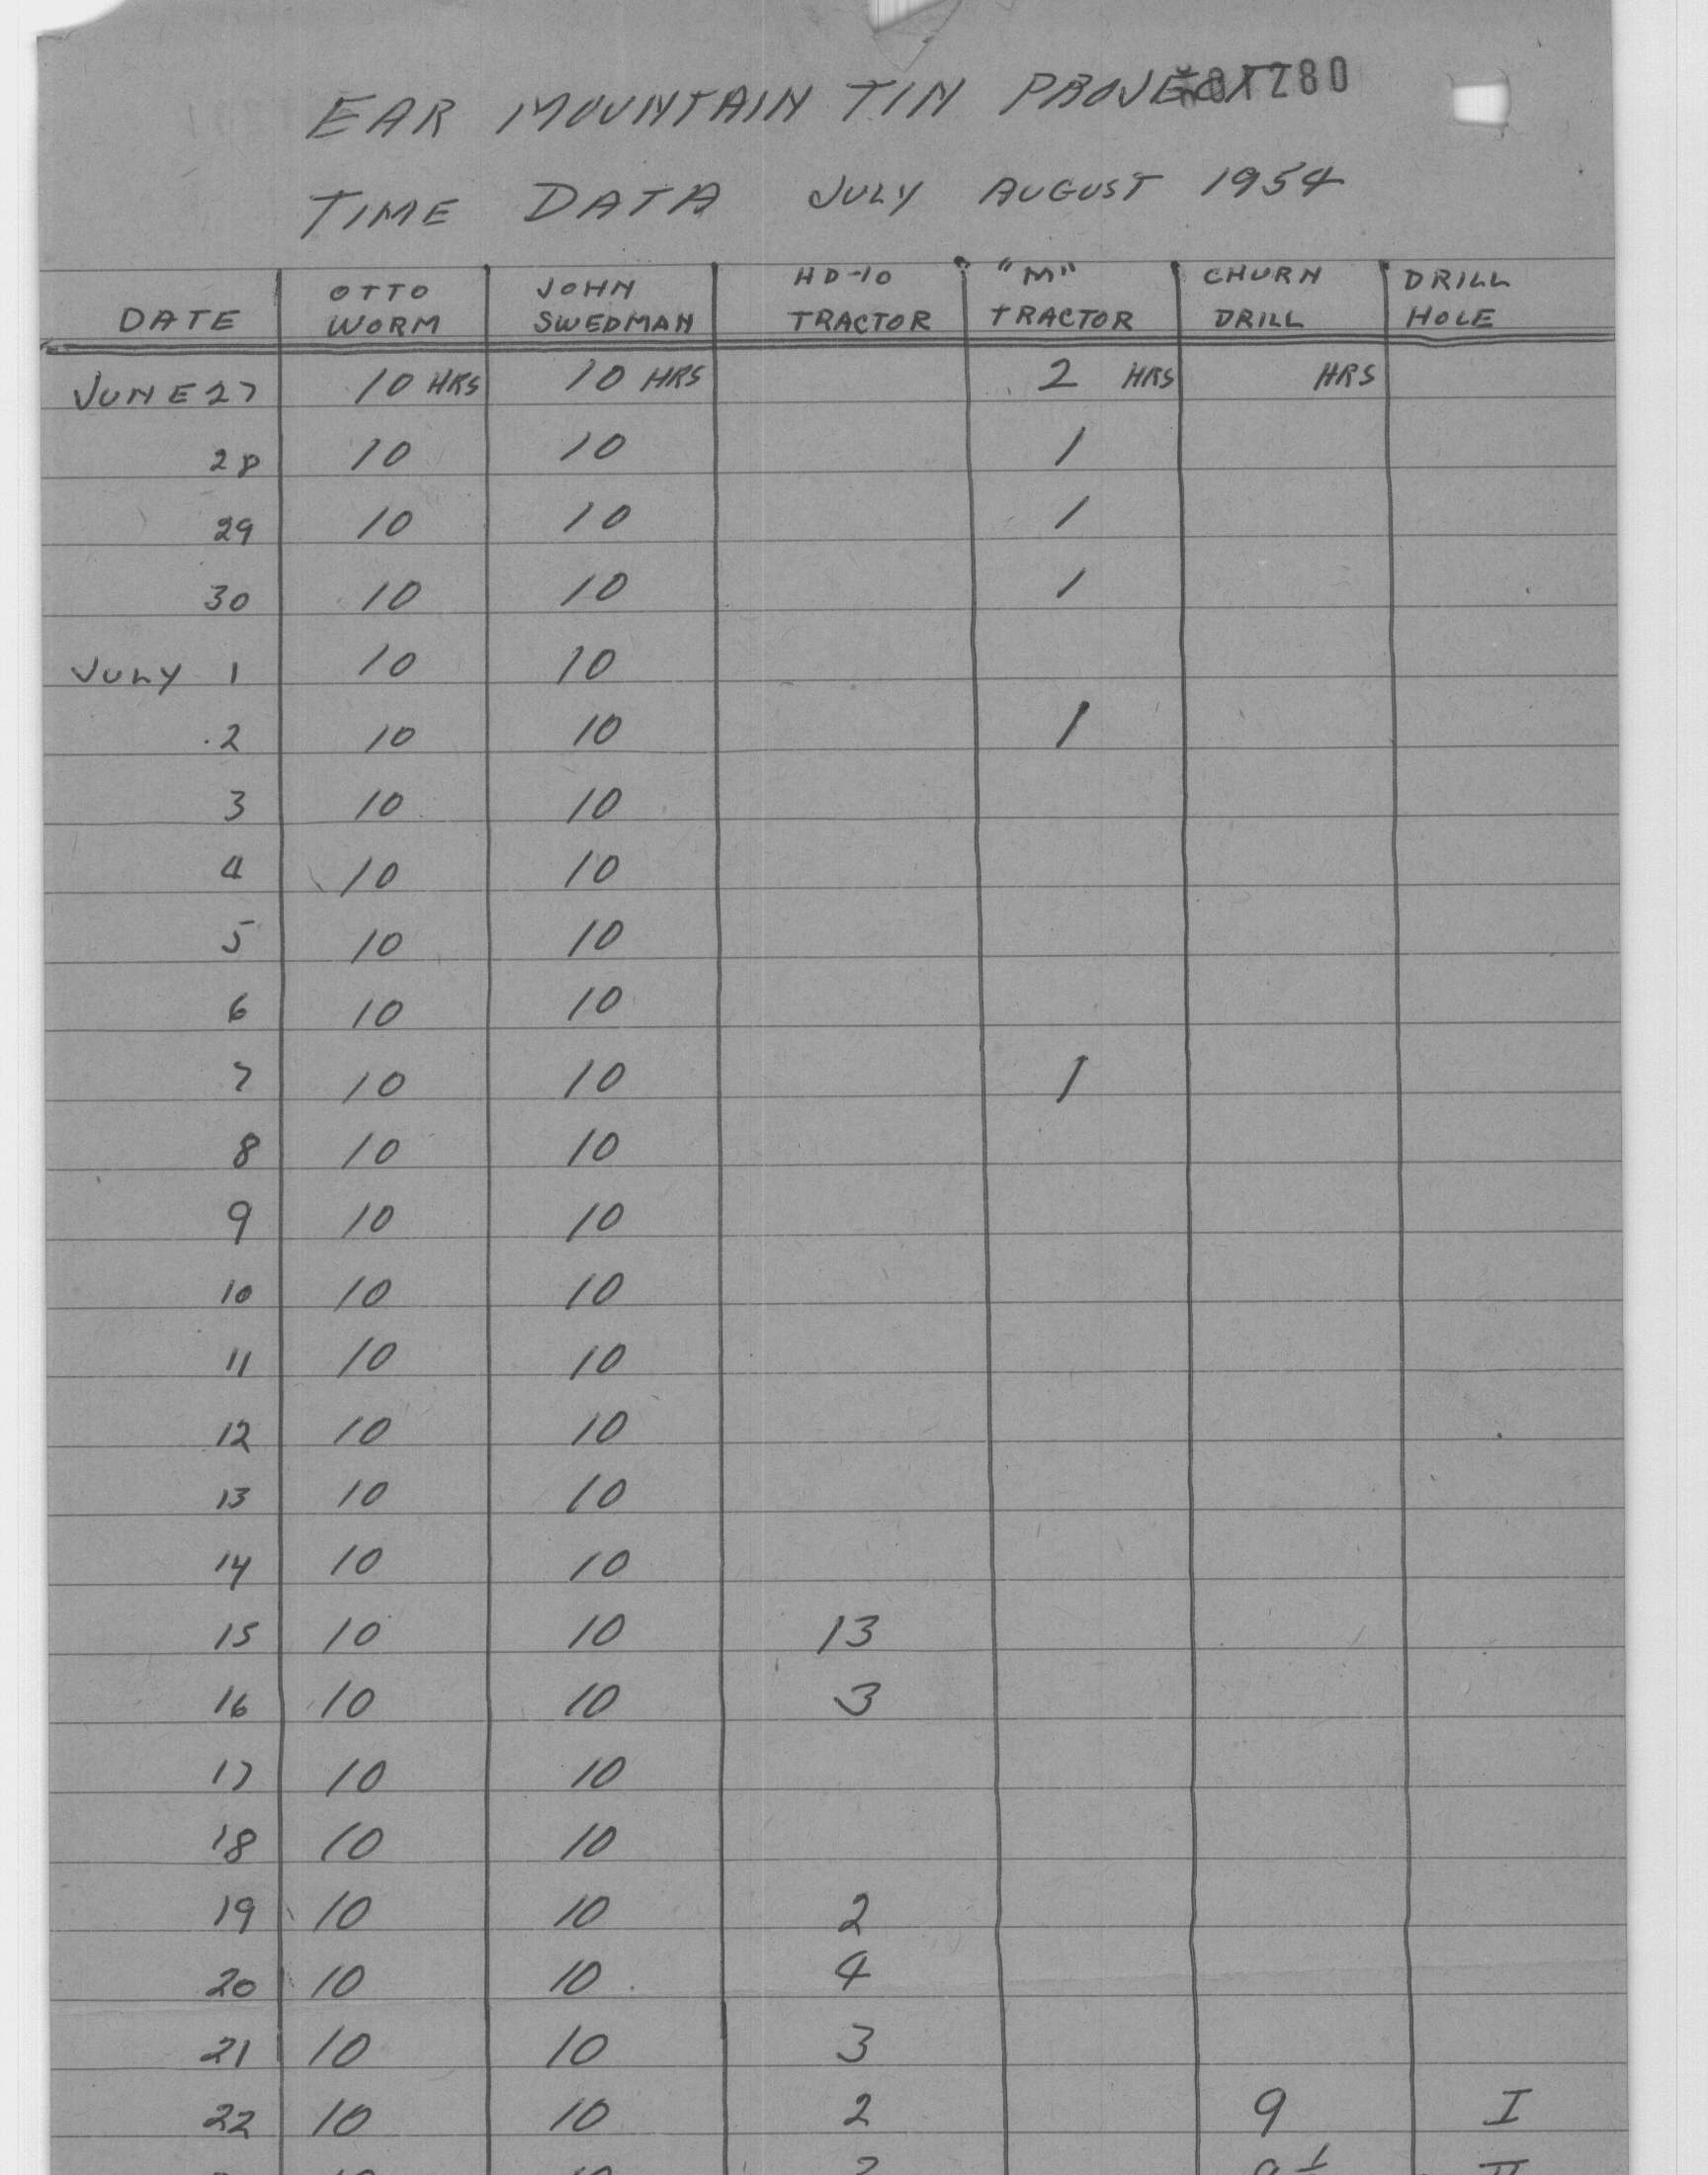 EAR MOUNTAIN TIN PROJECT 7280
TIME DATA JULY AUGUST 1954
DATE OTTO WORM JOHN SWEDMAN HD-10 TRACTOR "M" TRACTOR CHURN DRILL DRILL HOLE
JUNE 27 10 HRS 10 HRS 2 HRS HRS
28 10 10 1
29 10 10 1
30 10 10 1
JULY 1 10 10
2 10 10 1
3 10 10
4 10 10
5 10 10
6 10 10
7 10 10 1
8 10 10
9 10 10
10 10 10
11 10 10
12 10 10
13 10 10
14 10 10
15 10 10 13
16 10 10 3
17 10 10
18 10 10
19 10 10 2
20 10 10 4
21 10 10 3
22 10 10 2 9 I